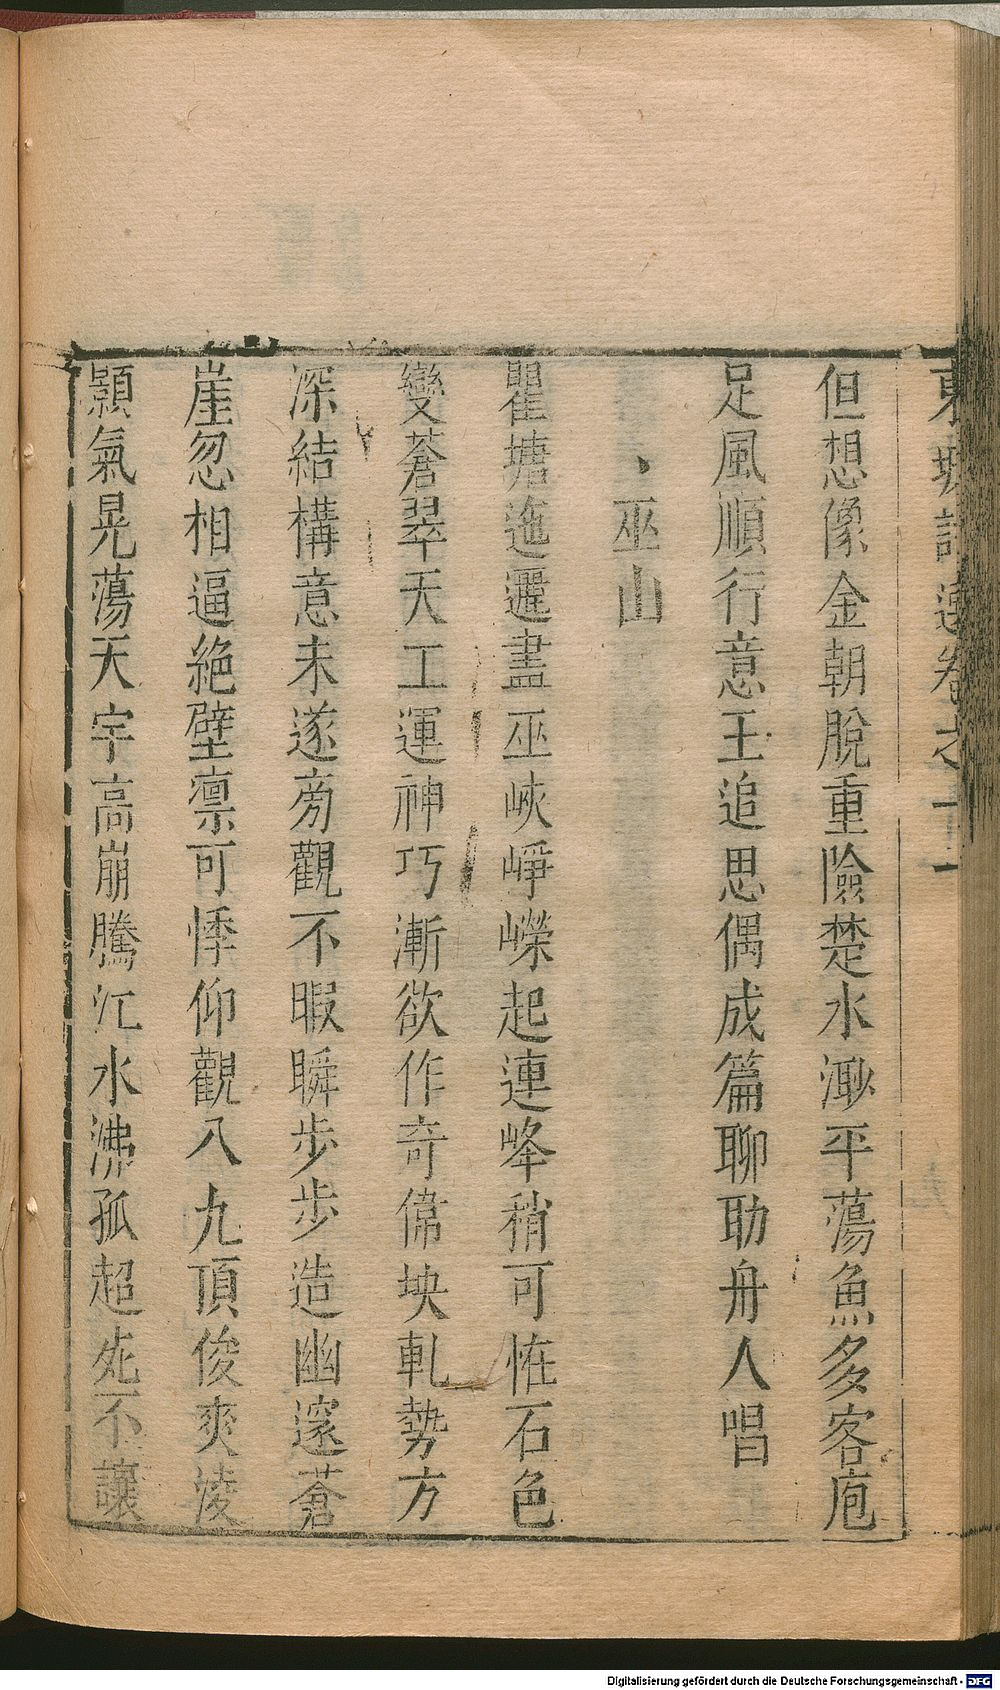 東坡詩選卷之十二
但想像金朝脫重險楚水渺平蕩魚多客庖
足風順行意王追思偶成篇聊助舟人唱
、巫山
瞿塘迤邐盡巫峽崢嶸起連峰稍可恠石色
變蒼翠天工運神巧漸欲作奇偉坱軋勢方
深結構意未遂旁觀不暇瞬步步造幽邃蒼
崖忽相逼絶壁凛可悸仰觀八九頂俊爽淩
顥氣晃蕩天宇高崩騰江水沸孤超兀不讓
Digitalisierung gefördert durch die Deutsche Forschungsgemeinschaft - DFG